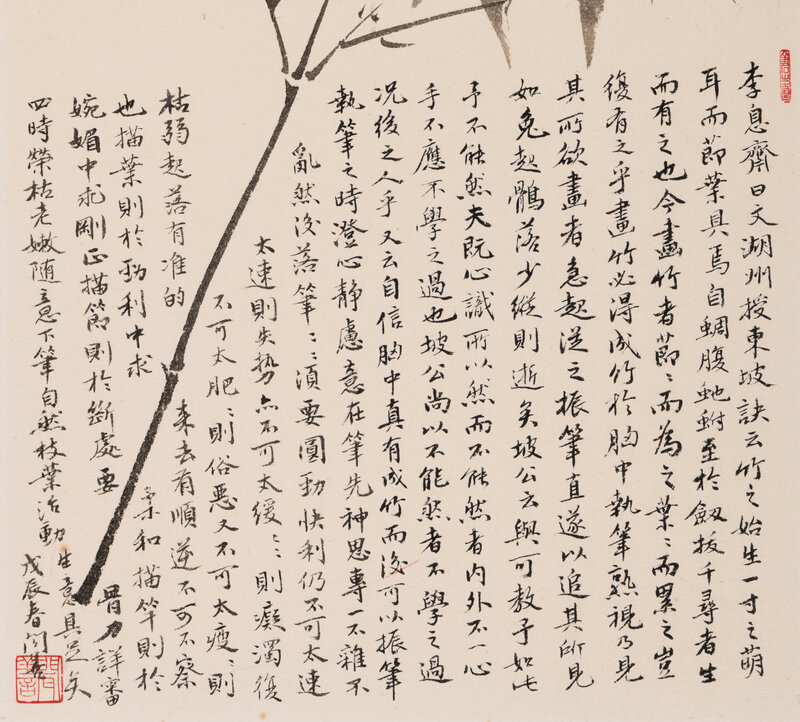 李息齋曰文湖州授東坡訣云竹之始生一寸之萌
耳而節葉具焉自蜩腹虵蚹至於劔拔千尋者生
而有之也今畫竹者節〻而為之葉〻而累之豈
復有之乎畫竹必得成竹於胸中執筆熟視乃見
其所欲畫者急起從之振筆直遂以追其所見
如兔起鶻落少縱則逝矣坡公云與可教予如此
予不能然夫既心識所以然而不能然者內外不一心
手不應不學之過也坡公尚以不能然者不學之過
況後之人乎又云自信胸中真有成竹而後可以振筆
執筆之時澄心静慮意在筆先神思專一不雜不
亂然後落筆〻〻須要圓勁快利仍不可太速
太速則失勢亦不可太緩〻〻則癡濁復
不可太肥〻則俗惡又不可太瘦〻則
枯弱起落有准的来去有順逆不可不察
也描葉則於勁利中求柔和描竿則於
婉媚中求剛正描節則於斷處要骨力詳審
四時榮枯老嫩随意下筆自然枝葉活動生意具足矣
戊辰春